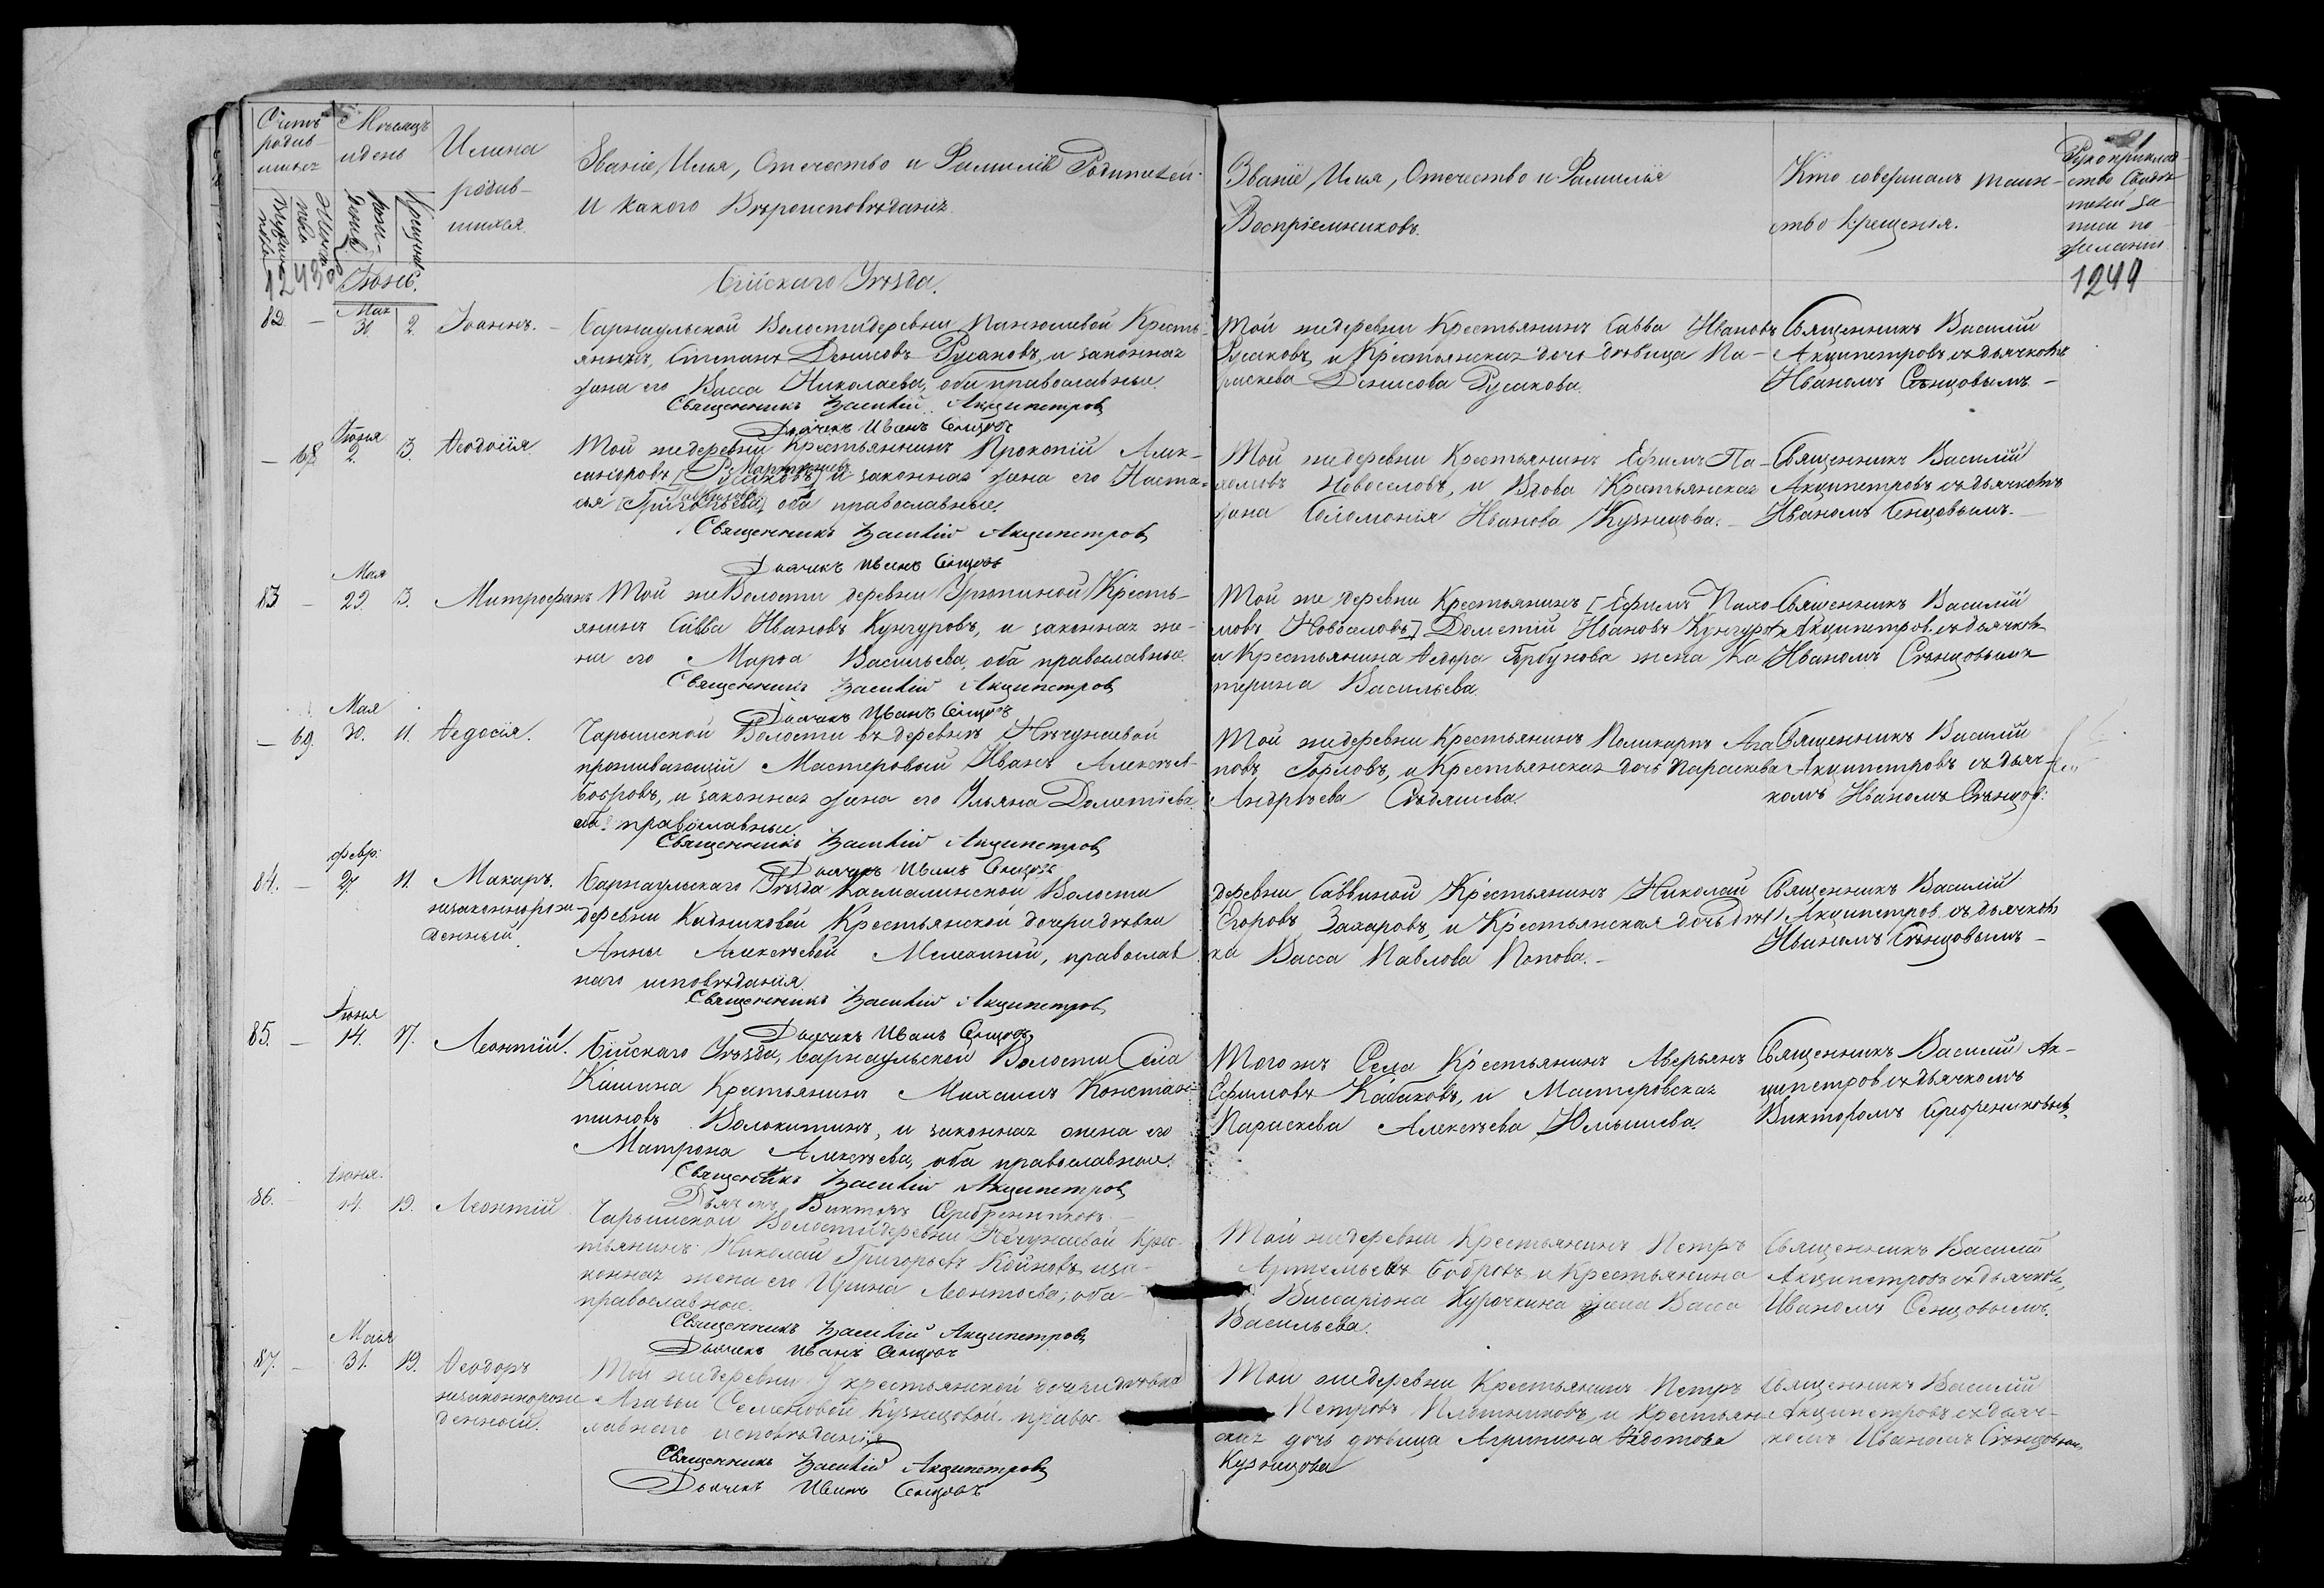 Счетъ родив-шихся
Мѣсяцъ и день
Имена родив-шихся.
Званіе, Имя, Отчество и Фамилія Родителей
и какого Вѣроисповѣданія.
Званіе, Имя, Отчество и Фамилья
Воспріемниковъ.
Кто совершалъ таин-
ство крещенія.
Рукоприклад-
ство свидѣ-
телей за-
писи по
желанію
1243об
Іюнь.
Бійскаго Уѣзда.
1244
82. — Мая 31. 2. Іоаннъ. —
Барнаульской Волости деревни Панюшевой Кресть-
янинъ, Степанъ Денисовъ Русаковъ, и законная
жена его Васса Николаева, оба православные.
Священникъ Василій Акципетровъ
Дьячекъ Иванъ Сенцовъ
Той же деревни Крестьянинъ Савва Ивановъ
Русаковъ, и Крестьянская дочь дѣвица Па-
раскева Денисова Русакова.
Священникъ Василій
Акципетровъ съ дьячкомъ
Иваномъ Сѣнцовымъ —
— 68. Іюня 2. 3. Ѳеодосія
Той же деревни Крестьянинъ Прокопій Алек-
сандровъ [Русаковъ] Мартыновъ и законная жена его Наста-
сья [Григорьева] оба православные.
Священникъ Василій Акципетровъ
Дьячекъ Иванъ Сенцовъ
Той же деревни Крестьянинъ Ефимъ Па-
хомовъ Новоселовъ, и Вдова Крестьянская
жена Соломонія Иванова Кузнецова. —
Священникъ Василій
Акципетровъ съ дьячкомъ
Иваномъ Сенцовымъ. —
83 — Мая 29. 3. Митрофанъ
Той же Волости деревни Урюпиной Кресть-
янинъ Савва Ивановъ Кунгуровъ, и законная же-
на его Марѳа Васильева, оба православные.
Священникъ Василій Акципетровъ
Дьячекъ Иванъ Сенцовъ
Той же деревни Крестьянинъ [Ефимъ Пахо-
мовъ Новоселовъ] Дометій Ивановъ Кунгуровъ
и Крестьянина Ѳедора Горбунова жена Ка
терина Васильева.
Священникъ Василій
Акципетров. съ дьячком
Иваномъ Сѣнцовымъ
— 69. Мая 30. 11. Ѳедосія.
Чарышской Волости въ деревнѣ Нечунаевой
проживающій Мастеровой Иванъ Алексѣев
Бобровъ, и законная жена его Ульяна Дометіева
оба православные.
Священникъ Василій Акципетровъ
Дьячекъ Иванъ Сенцовъ
Той же деревни Крестьянинъ Поликарпъ Ага
повъ Горловъ, и Крестьянская дочь Параскева
Андрѣева
Священникъ Василій
Акципетровъ съ дьяч-
комъ Иваномъ Сѣнцов:
84. — Февр: 27. 11. Макаръ. незаконнорож денный.
Барнаульскаго Уѣзда Касмалинской Волости
деревни Кадниковой Крестьянской дочери дѣвки
Анны Алексѣевой православ
наго исповѣданія.
Священникъ Василій Акципетровъ
Дьячекъ Иванъ Сенцовъ
деревни Саввиной Крестьянинъ Николай
Егоровъ Захаровъ, и Крестьянская дочь дѣв
ка Васса Павлова Попова. —
Священникъ Василій
Акципетров. съ дьячком
Иваномъ Сѣнцовымъ —
85. — Іюня 14. 17. Леонтій.
Бійскаго Уѣзда, Барнаульской Волости Села
Кашина Крестьянинъ Михаилъ Констан-
тиновъ Волокитинъ, и законная жена его
Матрона Алексѣева, оба православные.
Священникъ Василій Акципетровъ
Дьячекъ Викторъ Серебренниковъ. —
Того жъ Села Крестьянинъ Аверьянъ
Ефимовъ Кабаковъ, и Мастеровская
Параскева Алексѣева
Священникъ Василій Ак-
ципетров съ дьячкомъ
Викторомъ Сребрениковым
86. Іюня. 14. 19. Леонтій
Чарышской Волости деревни Нечунаевой Крес-
тьянинъ Николай Григорьевъ и за-
конная жена его Ирина Леонтьева, оба
православные.
Священникъ Василій Акципетровъ
Дьячекъ Иванъ Сенцовъ
Той же деревни Крестьянинъ Петръ
Артемьевъ Бобровъ и Крестьянина
Виссаріона Курочкина жена Васса
Васильева.
Священникъ Василій
Акципетровъ съ дьячком,
Иваномъ Сенцовымъ,
87. — Маія 31. 19. Ѳеодоръ незаконнорож денный.
Той же деревни У крестьянской дочери дѣвки
Агаѳьи Семеновой Кузнецовой правос-
лавнаго исповѣданія
Священникъ Василій Акципетровъ
Дьячекъ Иванъ Сенцовъ
Той же деревни Крестьянинъ Петръ
Петровъ Плотниковъ, и Крестьян-
ская дочь дѣвица Агрипина Ѳедотова
Кузнецова
Священникъ Василій
Акципетровъ съ дьяч-
комъ Иваномъ Сѣнцовым,